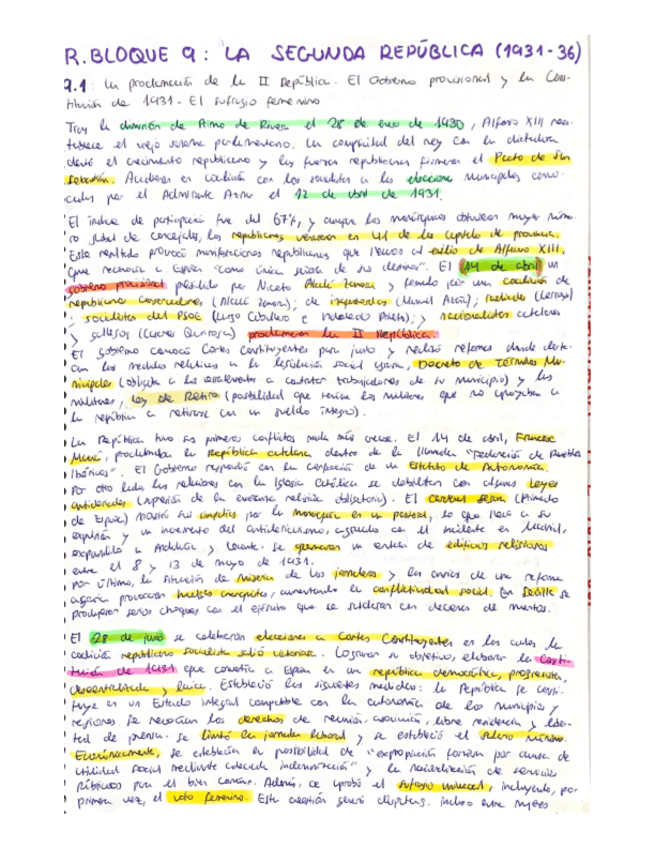 R.BLOQUE 9: LA SEGUNDA REPÚBLICA (1931-36)
9.1: La proclamación de la II República. El Gobierno provisional y la Cons-
titución de 1931. El sufragio femenino
Tras la dimisión de Primo de Rivera el 28 de enero de 1930, Alfonso XIII
el viejo sistema parlamentario. La complicidad del rey con la dictadura
el crecimiento republicano y las fuerzas republicanas firmaron el Pacto de San
Sebastián. en coalición con los socialistas a las elecciones municipales convo-
cadas por el Almirante Aznar el 12 de abril de 1931.
El índice de participación fue del 67%, y aunque los monárquicos obtuvieron mayor núme-
ro total de concejales, los republicanos vencieron en 41 de las capitales de provincia.
Este resultado provocó manifestaciones republicanas que llevaron al exilio de Alfonso XIII,
que reconocía a España "como única señora de sus destinos". El 14 de abril un
gobierno provisional presidido por Niceto Alcalá Zamora y formado por una coalición de
republicanos conservadores (Alcalá Zamora); de izquierdas (Manuel Azaña); radicales (Lerroux)
socialistas del PSOE (Largo Caballero e Indalecio Prieto); y nacionalistas catalanes
y gallegos (Casares Quiroga) proclamaron la II República.
El gobierno convocó Cortes Constituyentes para junio y realizó reformas desde
las medidas relativas a la legislación social agraria, Decreto de Términos Mu-
nicipales (obligaba a los terratenientes a contratar trabajadores de su municipio) y las
militares, Ley de Retiro (posibilidad que tenían los militares que no apoyaban a
la república a retirarse con un sueldo íntegro).
La República tuvo sus primeros conflictos nada más crearse. El 14 de abril, Francesc
Macià, proclamaba la República catalana dentro de la llamada "Federación de Pueblos
Ibéricos". El Gobierno respondió con la concesión de un Estatuto de Autonomía.
Por otro lado las relaciones con la Iglesia Católica se debilitan con algunas leyes
anticlericales (supresión de la enseñanza religiosa obligatoria). El cardenal Segura (Primado
de España) mostró sus simpatías por la monarquía en una pastoral, lo que llevó a su
expulsión y un incremento del anticlericalismo, agravado con el incidente en Madrid,
expandido a Andalucía y Levante. Se quemaron un centenar de edificios religiosos
entre el 8 y 13 de mayo de 1931.
Por último, la situación de miseria de los jornaleros y las ansias de una reforma
agraria provocaron huelgas campesinas, aumentando la conflictividad social. En Sevilla se
produjeron serios choques con el ejército que se saldaron con decenas de muertos.
El 28 de junio se celebraron elecciones a Cortes Constituyentes en las cuales la
coalición republicano socialista salió victoriosa. Lograron su objetivo, elaborar la Consti-
tución de 1931 que convertía a España en una república democrática, progresista,
descentralizada y laica. Estableció las siguientes medidas: la República se consti-
tuye en un Estado integral compatible con la autonomía de los municipios y
regiones. Se reconocían los derechos de reunión, asociación, libre residencia y liber-
tad de prensa. Se limitó la jornada laboral y se estableció el salario mínimo.
Económicamente, se establecía la posibilidad de "expropiación forzosa por causa de
utilidad social mediante adecuada indemnización" y la nacionalización de servicios
públicos para el bien común. Además, se aprobó el sufragio universal, incluyendo, por
primera vez, el voto femenino. Esta cuestión generó disputas, incluso entre mujeres